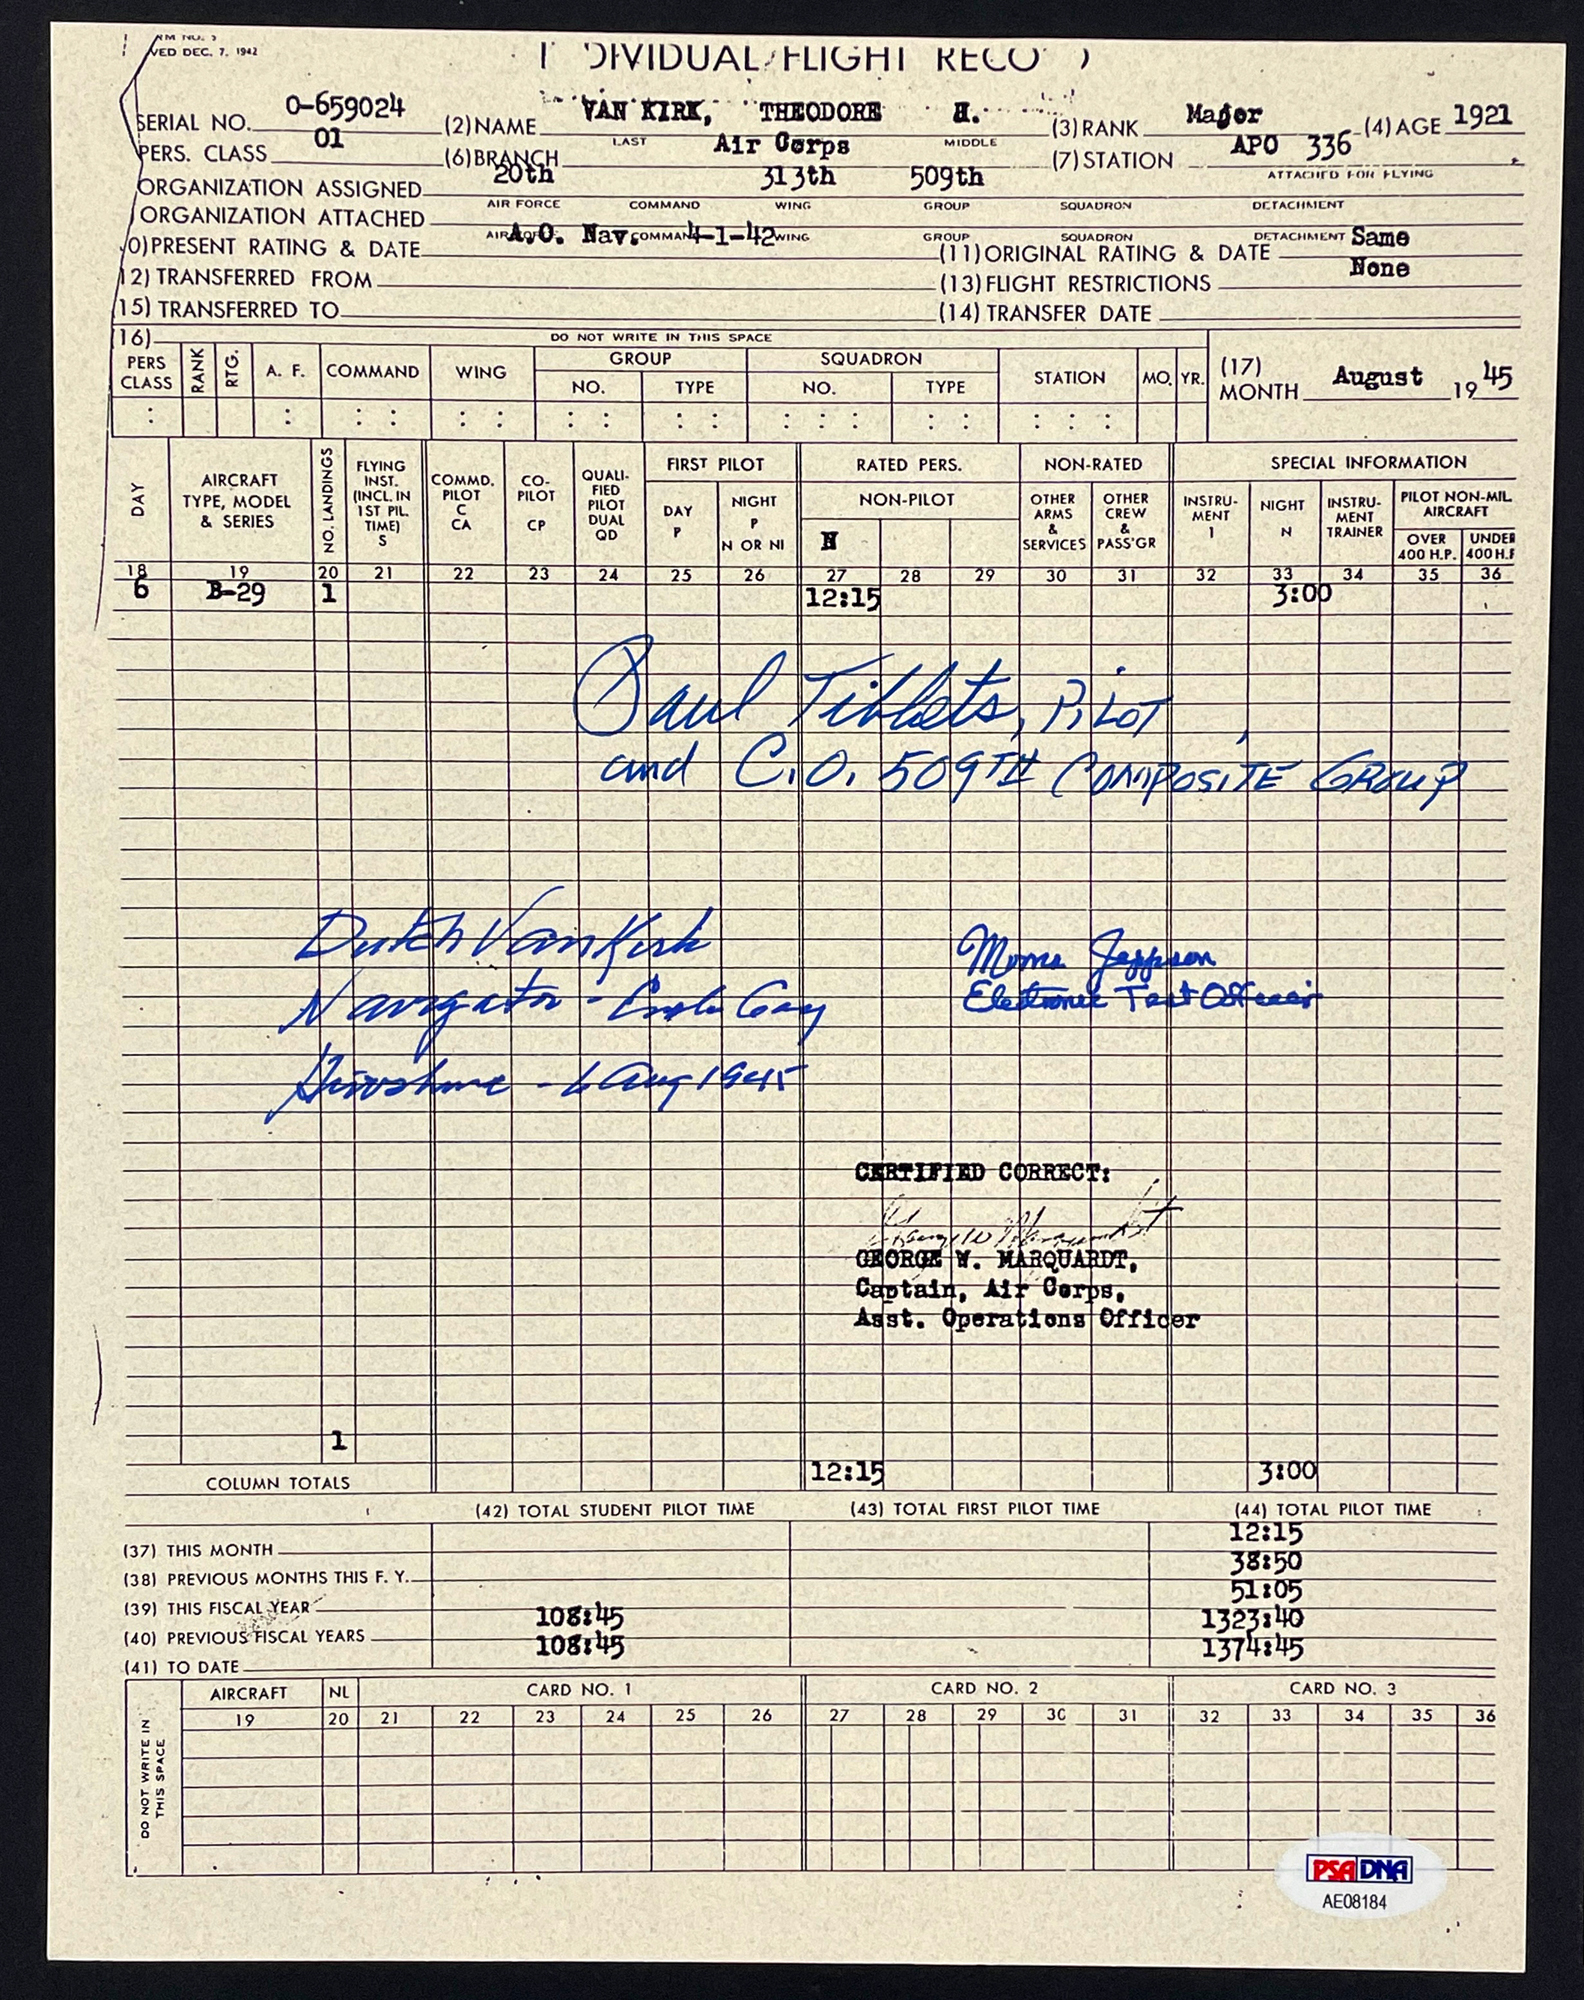 RM NO. 5
VED DEC. 7, 1942
DIVIDUAL FLIGHT RECO
SERIAL NO. 0-659024 (2)NAME VAN KIRK, THEODORE H. (3)RANK Major (4)AGE 1921
LAST MIDDLE
PERS. CLASS 01 (6)BRANCH Air Corps (7)STATION APO 336
ORGANIZATION ASSIGNED 20th 313th 509th ATTACHED FOR FLYING
AIR FORCE COMMAND WING GROUP SQUADRON DETACHMENT
ORGANIZATION ATTACHED
AIR FORCE COMMAND WING GROUP SQUADRON DETACHMENT
0)PRESENT RATING & DATE A.O. Nav. 4-1-42 (11)ORIGINAL RATING & DATE Same
12)TRANSFERRED FROM (13)FLIGHT RESTRICTIONS None
15) TRANSFERRED TO (14) TRANSFER DATE
16) DO NOT WRITE IN THIS SPACE
PERS CLASS RANK RTG. A. F. COMMAND WING GROUP NO. TYPE SQUADRON NO. TYPE STATION MO. YR.
(17) MONTH August 1945
DAY AIRCRAFT TYPE, MODEL & SERIES NO. LANDINGS FLYING INST. (INCL. IN 1ST PIL. TIME) S COMMD. PILOT C CA CO-PILOT CP QUALI-FIED PILOT DUAL QD FIRST PILOT DAY P NIGHT P N OR NI RATED PERS. NON-PILOT N NON-RATED OTHER ARMS & SERVICES OTHER CREW & PASS'GR SPECIAL INFORMATION INSTRU-MENT I NIGHT N INSTRU-MENT TRAINER PILOT NON-MIL. AIRCRAFT OVER 400 H.P. UNDER 400 H.P
18 19 20 21 22 23 24 25 26 27 28 29 30 31 32 33 34 35 36
6 B-29 1 12:15 3:00
Paul Tibbets, Pilot
and C.O. 509TH COMPOSITE GROUP
Dutch VanKirk
Navigator - Enola Gay
Hiroshima - 6 Aug 1945
Morris Jeppson
Electronic Test Officer
CERTIFIED CORRECT:
George W Marquardt
GEORGE W. MARQUARDT,
Captain, Air Corps,
Asst. Operations Officer
1
COLUMN TOTALS 12:15 3:00
(42) TOTAL STUDENT PILOT TIME (43) TOTAL FIRST PILOT TIME (44) TOTAL PILOT TIME
(37) THIS MONTH 12:15
(38) PREVIOUS MONTHS THIS F. Y. 38:50
(39) THIS FISCAL YEAR 51:05
(40) PREVIOUS FISCAL YEARS 108:45 1323:40
(41) TO DATE 108:45 1374:45
DO NOT WRITE IN THIS SPACE
AIRCRAFT NL CARD NO. 1 CARD NO. 2 CARD NO. 3
19 20 21 22 23 24 25 26 27 28 29 30 31 32 33 34 35 36
PSA DNA
AE08184